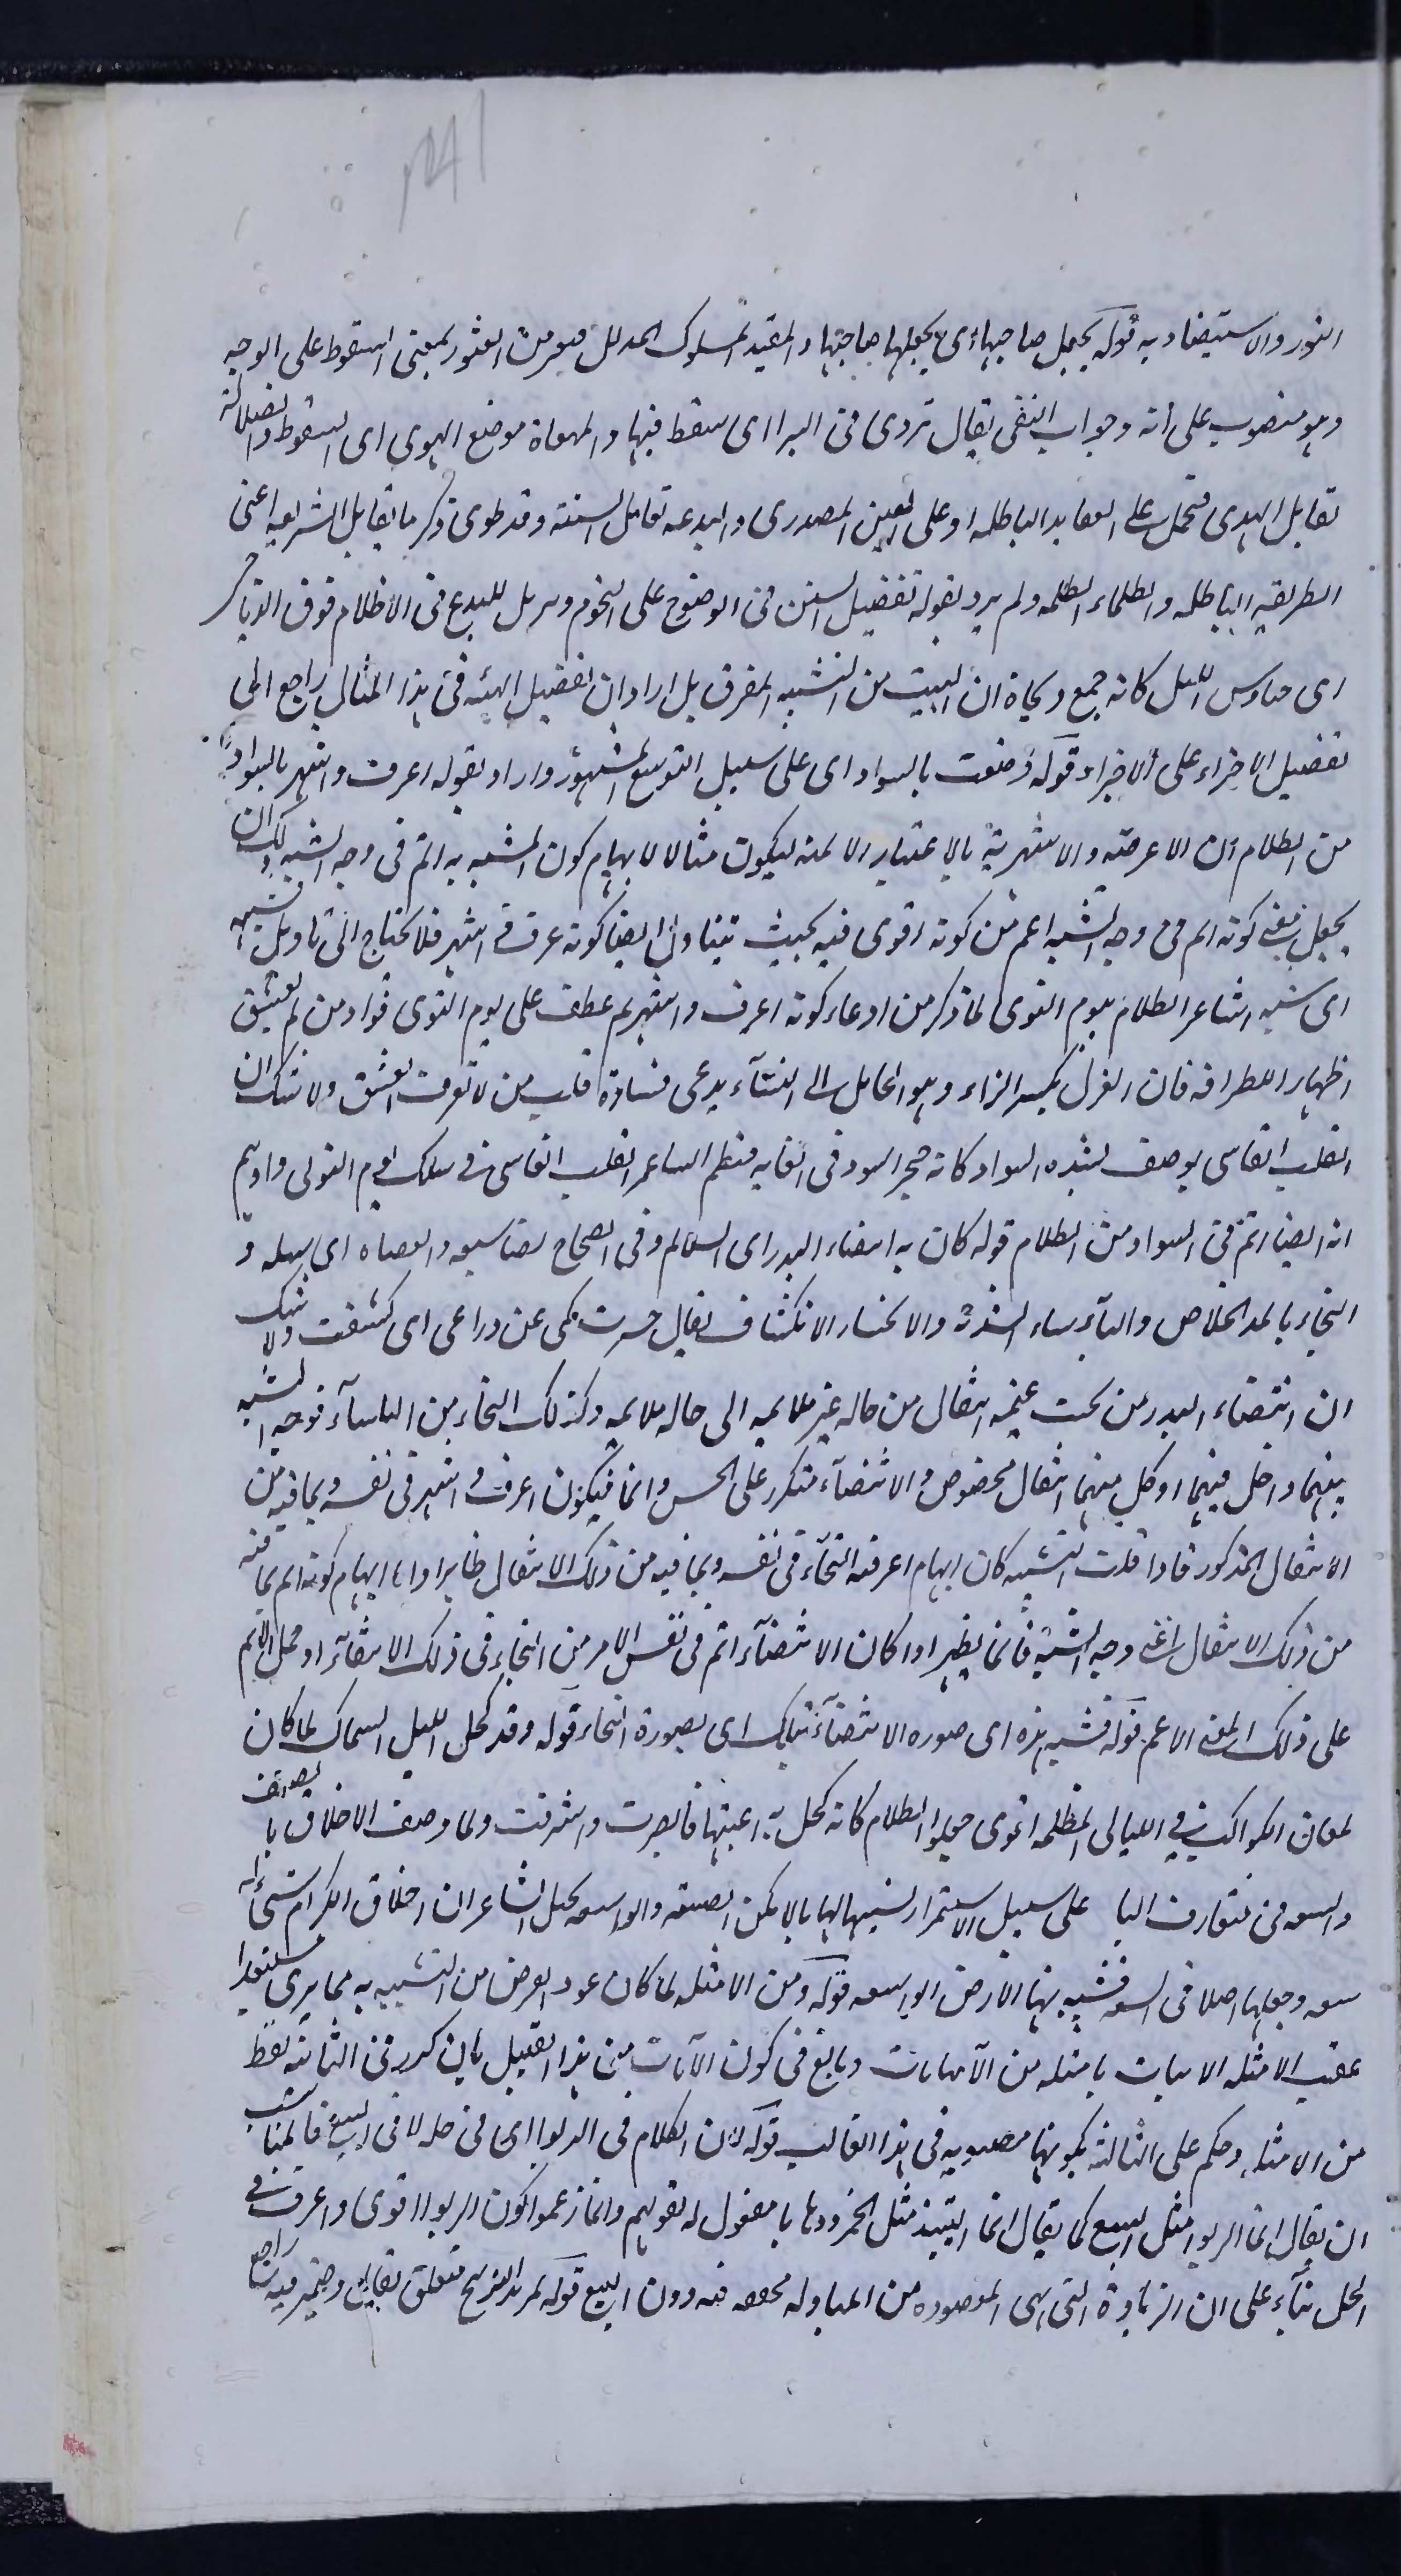 النور والاستيضاد به قوله يجعل صاحبها اى يجعلها صاحبها والمقيد لسلوك المدلل فيعمر من العثور بمعنى السقوط على الوجه
وهو منصوب على أنه وجواب النفى يقال تردى فى البر اى سقط فيها والمهواة موضع الهوي اى السقوط والضلالة
تقابل الهدى فتحمل على العقايد الباطله او على المعنى المصدرى والبدعه تقابل السنة وقد طوى ذكر ما يقابل الشريعه اعنى
الطريقه الباطله والظلماء الظلمه ولم يرد بقوله تفضيل السنن فى الوضوح على النجوم وتنزيل للبدع فى الاظلام فوق الدياجر
اى حنادس الليل كانه جمع ديجاة ان البيت من التشبيه المفرق بل اراد ان تفضيل الهيئه فى هذا المثال راجع الى
تفضيل الاجزاء على الاجزاء قوله وصفت بالسواد اى على سبيل التوسع المشهور واراد بقوله اعرف واشهر بالسواد
من الظلام ان الاعرفيه والاشهرية بالاعتبار الاتمه ليكون مثالا لايهام كون المشبه به اتم فى وجه الشبه ولك ان
يجعل معنى كونه اتم فى وجه الشبه اعم من كونه اقوى فيه بحيث يتناول ايضا كونه اعرف واشهر فلا يحتاج الى تاويل شبه
اى شبه الشاعر الظلام بيوم النوى لما ذكر من ادعاء كونه اعرف واشهر ثم عطف على يوم النوى فواد من لم يعشق
اظهارا للطرافه فان الغزل بكسر الزاء وهو المايل الى النسآء يدعى قساوة قلب من لا يعرف العشق ولا شك ان
القلب القاسى يوصف بشده السواد كانه حجر اسود فى الغايه فنظم الشاعر القلب القاسى فى سلك يوم النوى واوهم
انه ايضا اتم فى السواد من الظلام قوله كان به انتضاء البدر اى السالم وفى الصحاح نضا سيفه وانتضاه اى سله و
النجاء بالمد الخلاص والبأساء الشدة والانحسار الانكشاف يقال حسرت كمى عن ذراعى اى كشفت ولا شك
ان انتضاء البدر من تحت غيمه انتقال من حاله غير ملايمه الى حاله ملايمه وكذلك النجاء من الباساء فوجه الشبه
بينهما داخل فيهما او كل منهما انتقال مخصوص والانتضآء متكرر على الحس دائما فيكون اعرف واشهر فى نفسه وبما فيه من
الانتقال المذكور فاذا قلت التشبيه كان ايهام اعرفيه النجاء فى نفسه وبما فيه من ذلك الانتقال ظاهرا واما ايهام كونه اتم بما فيه
من ذلك الانتقال اعنى وجه الشبه فانما يظهر اذا كان الانتضآء اتم فى نفس الامر من النجاء فى ذلك الانتقال او حمل الاتم
على ذلك المعنى الاعم قوله فشبه هذه اى صوره الانتضآء بتلك اى بصورة النجاء قوله وقد كحل الليل السماك لما كان
لمعان الكواكب فى الليالى المظلمه اقوى جعلوا الظلام كانه كحل به اعينها فابصرت واشرقت ولما وصف الاخلاق بالضيق
والسعه فى متعارف الناس على سبيل الاستمرار تشبيها لها بالاماكن الضيقه والواسعه تخيل الشاعر ان اخلاق الكرام شئ له
سعه وجعلها اصلا فى السعه فشبه بها الارض الواسعه قوله ومن الامثله لما كان عود الغرض من التشبيه به مما يرى مستبعدا
عقب الامثله الابيات بامثله من الآيات وبالغ فى كون الآيات من هذا القبيل بان كرر فى الثانيه لفظ
من الامثله وحكم على الثالثة بكونها مصبوبه فى هذا القالب قوله لان الكلام فى الربوا اى فى حله لا فى البيع فالمناسب
ان يقال انما الربوا مثل البيع كما يقال انما النبيذ مثل الخمر ذهابا مفعول له لقولهم وانما زعموا كون الربوا اقوى واعرف فى
الحل بناء على ان الزيادة التى هى المقصوده من المبادله محققه فيه دون البيع قوله لمزيد التوبيخ متعلق بقابل وضمير فيه راجع